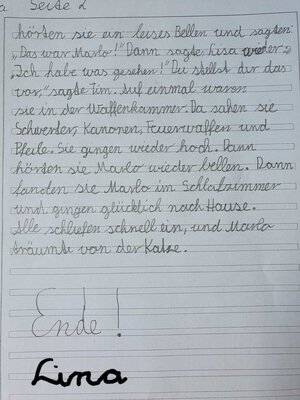 a Seite 2
hörten sie ein leises Bellen und sagten:
„Das war Marlo!" Dann sagte Lisa wieder:
„Ich habe was gesehen!" Du stellst dir das
vor," sagte Tim. Auf einmal waren
sie in der Waffenkammer. Da sahen sie
Schwerter, Kanonen, Feuerwaffen und
Pfeile. Sie gingen wieder hoch. Dann
hörten sie Marlo wieder bellen. Dann
fanden sie Marlo im Schlafzimmer
und gingen glücklich nach Hause.
Alle schliefen schnell ein, und Marlo
träumte von der Katze.
Ende!
Lina